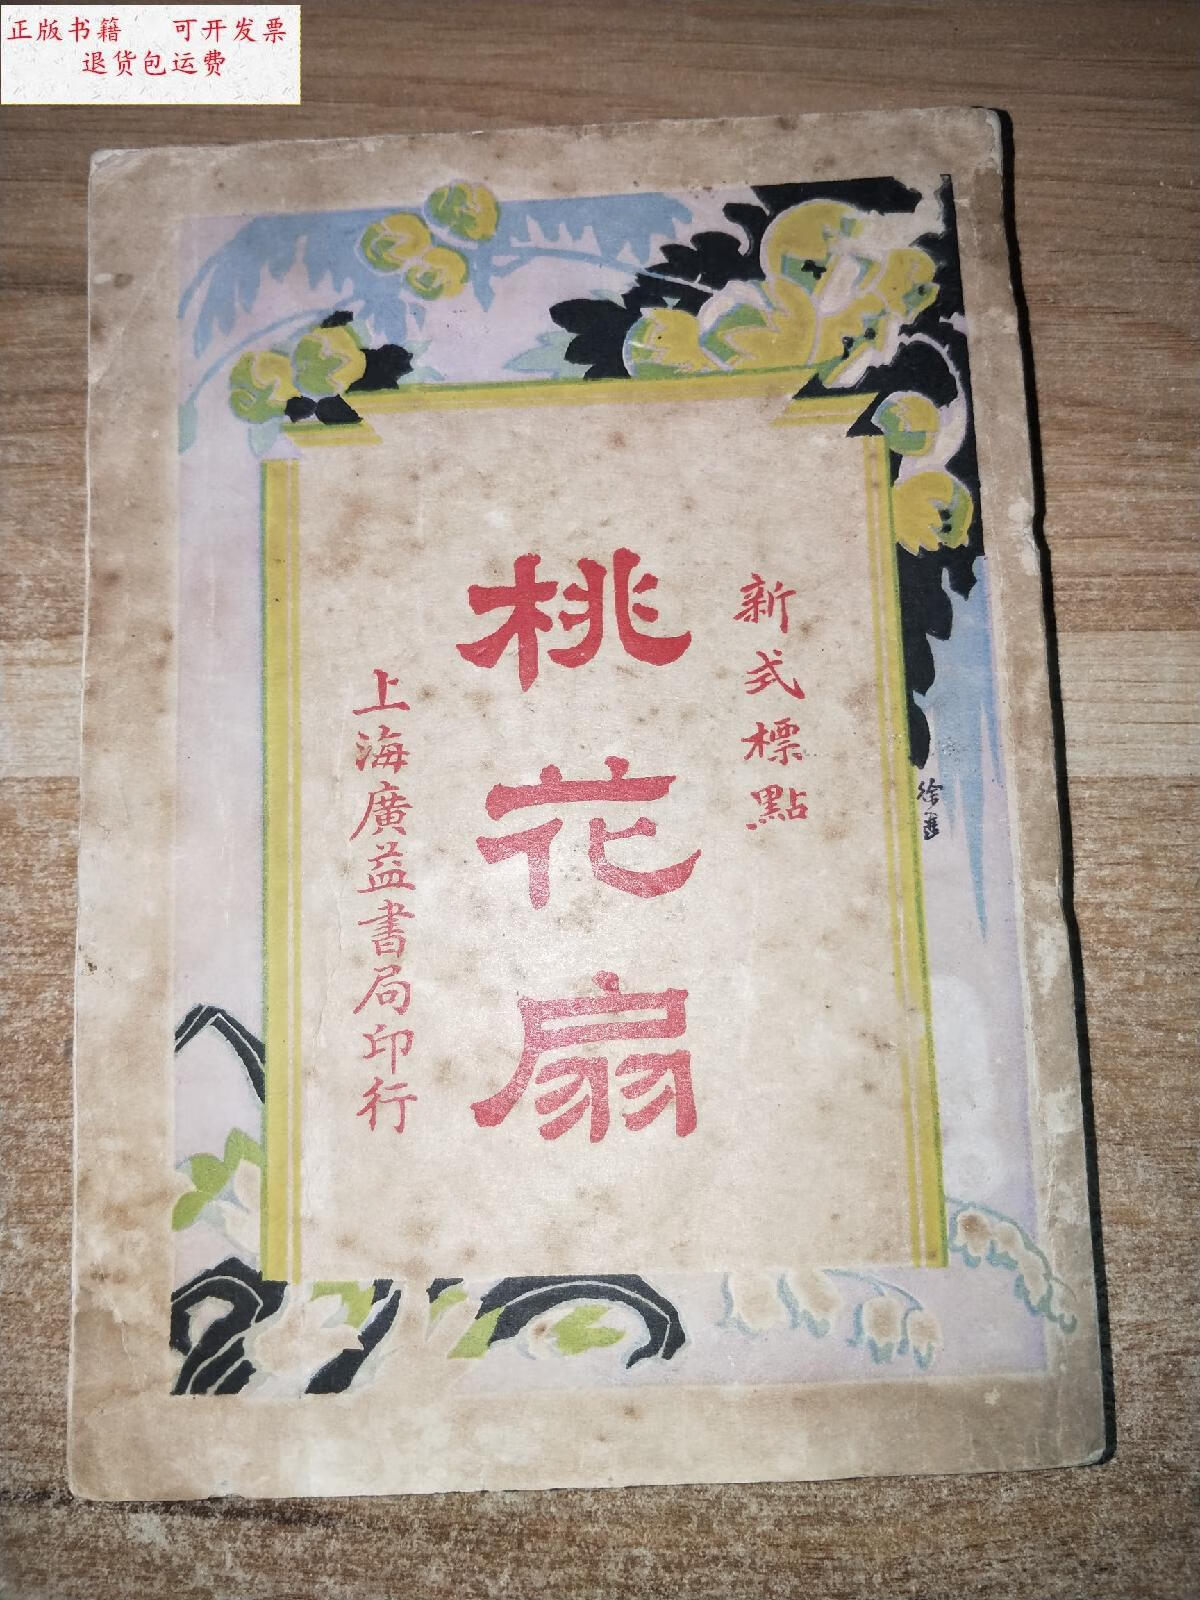 正版书籍 可开发票
退货包运费
新式標點
桃花扇
上海廣益書局印行